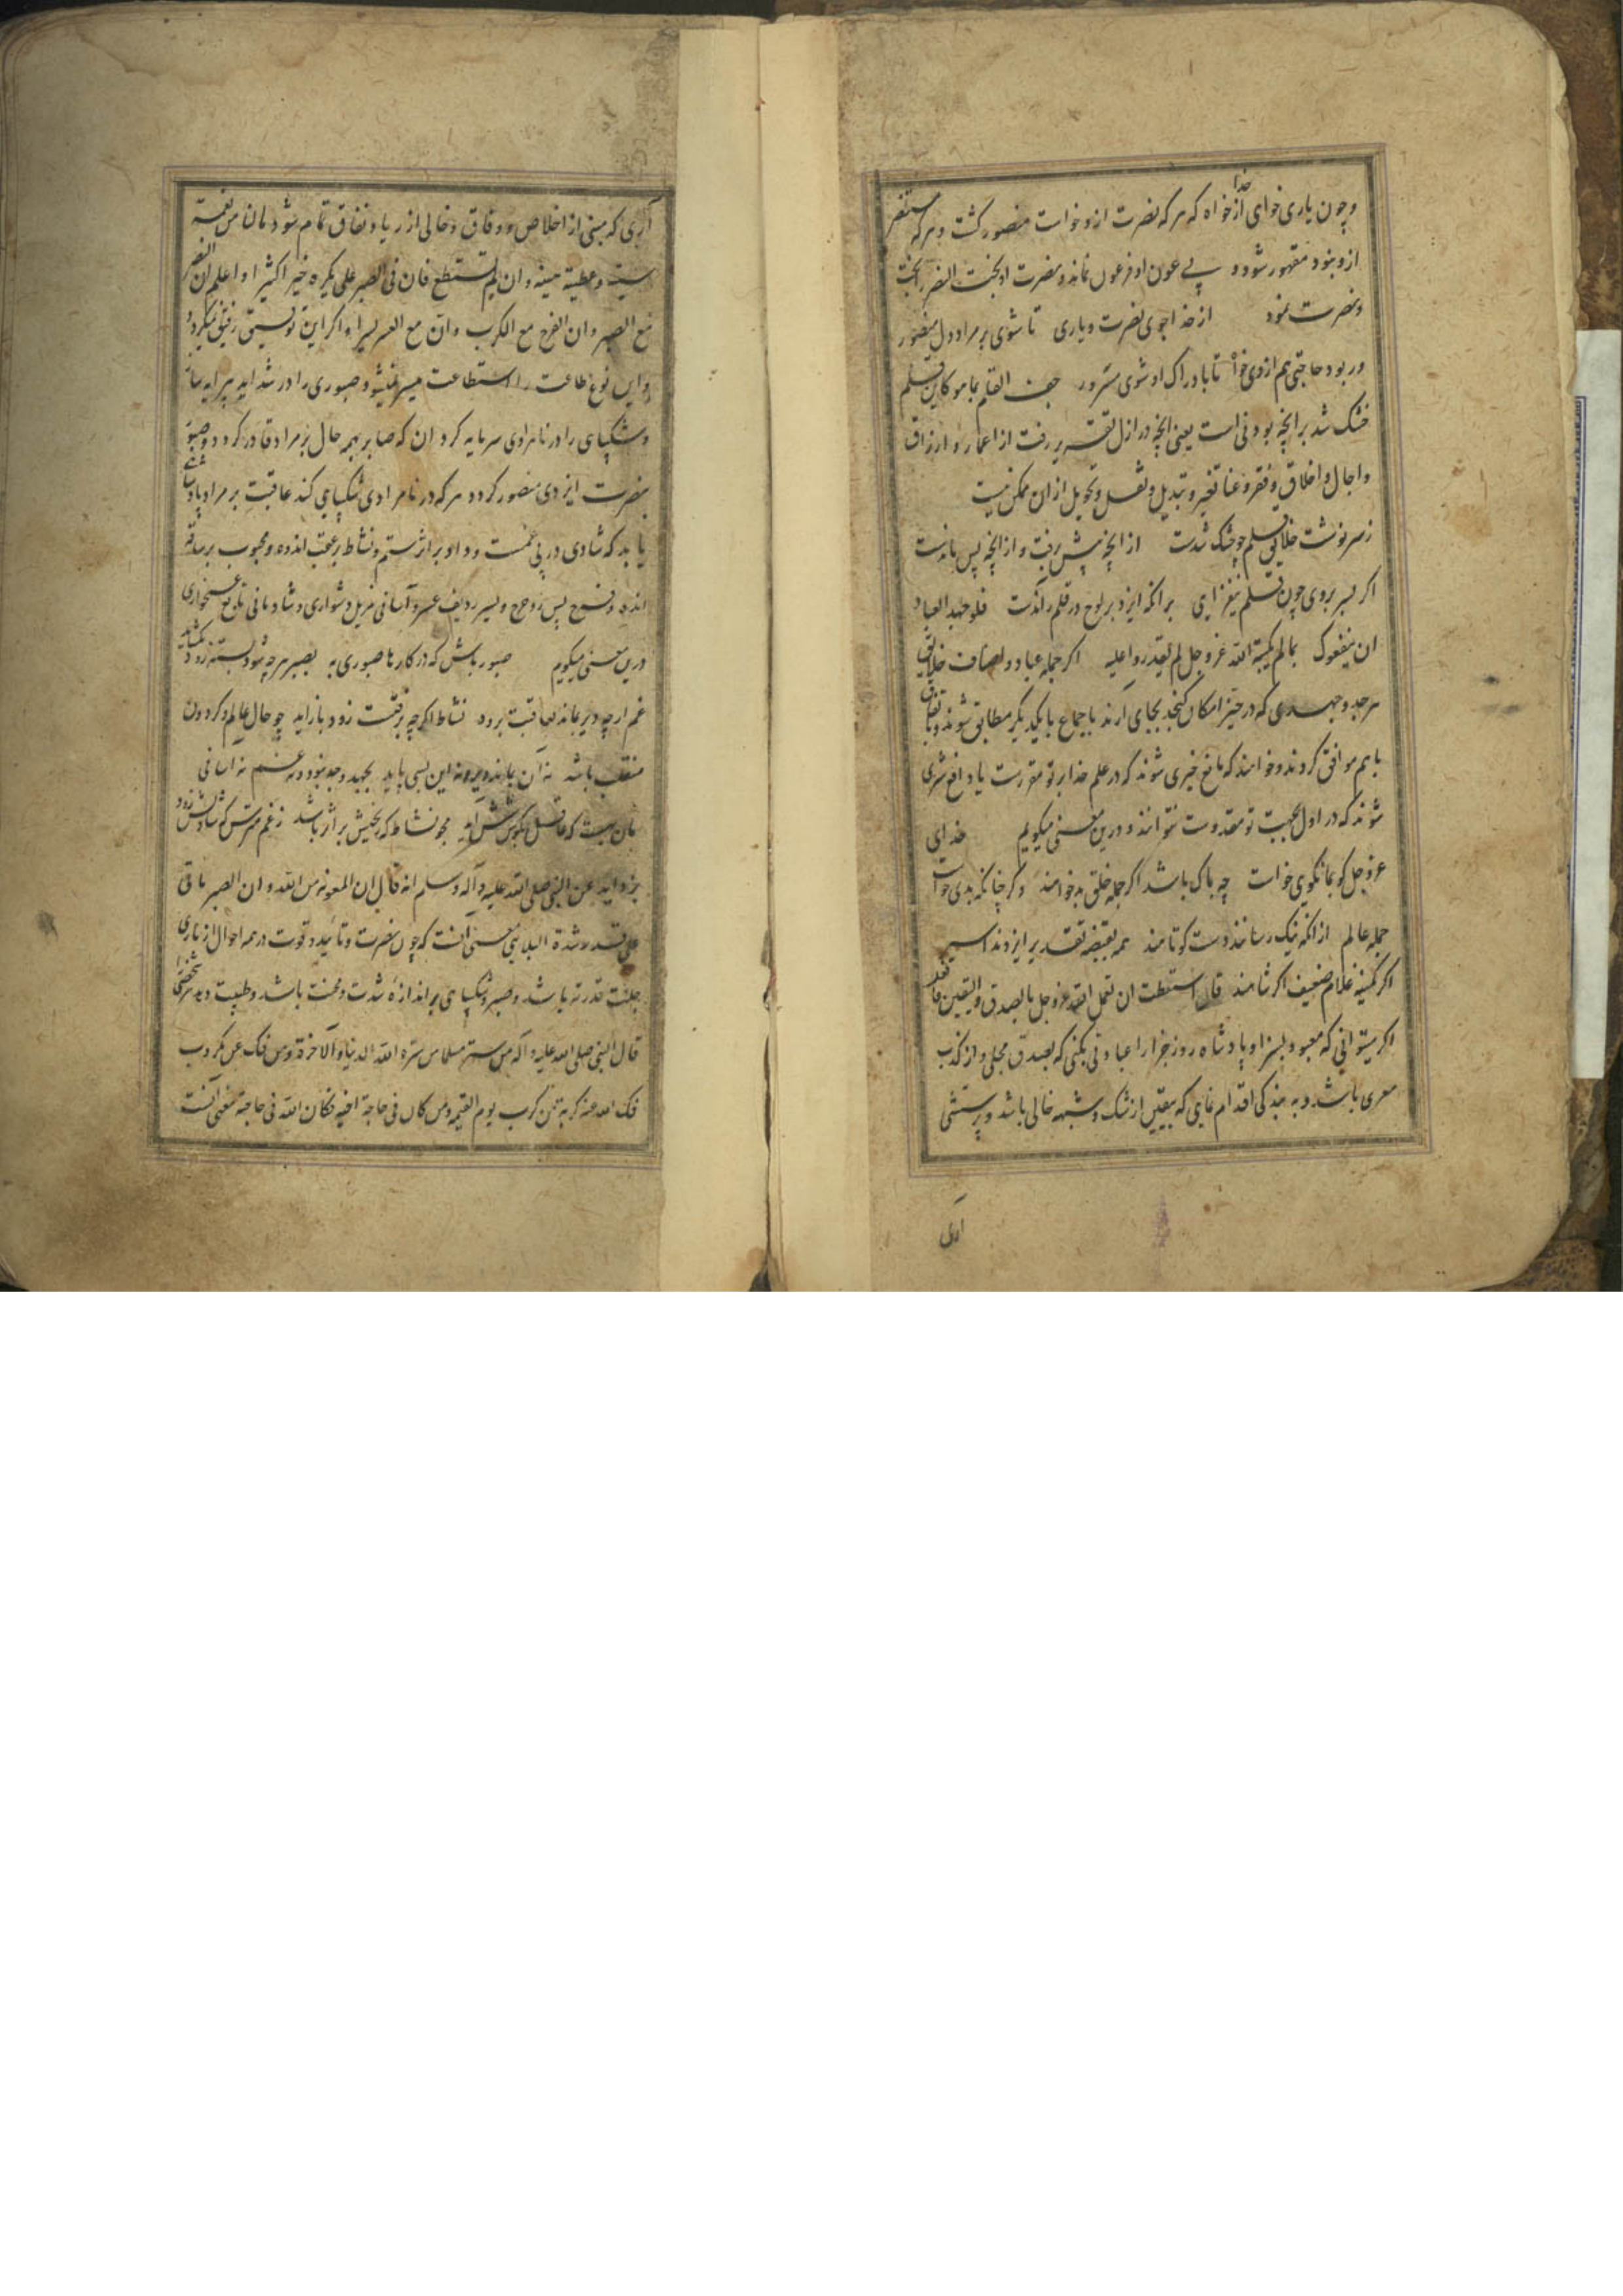 وچون یاری خوای از خدا خواه که هر که نصرت ازو خواست منصور کشت و هر که مستنصر
ازو نبود مقهور شود و بی عون او فرعون نماند و نصرت او
ونصرت نمود از خدا جوی نصرت و یاری تا شوی بر مراد دل منصور
ور بود حاجتی هم ازوی خواه تا با دراک او شوی مسرور جف القلم بما هو کاین قلم
خشک شد بر انچه بودنی است یعنی انچه در ازل تقدیر رفت از اعمار و ارزاق
واجال و اخلاق و فقر و غنا تغییر و تبدیل و نقل و تحویل ازان ممکن نیست
زسر نوشت خلایق قلم چو خشک شدست از انچه پیش برفت و از انچه پس ماندست
اکر بسر بروی چون قلم نیفزایی بر انکه ایزد بر لوح در قلم راندست فلو جهد العباد
ان ینفعوک بما لم یکتبه الله عز وجل لم یقدروا علیه اکر جمله عباد و اصناف خلایق
هر جد و جهدی که در حیز امکان کنجد بجای آرند باجماع با یکدیکر مطابق شوند و باتفاق
باهم موافق کردند و خواهند که مانع خیری شوند که در علم خدا بر تو مقررست یا دافع شری
شوند که در اول بجهت تو مقدرست نتوانند و درین معنی میکویم خدای
عز وجل کو بما نکویی خواست چه باک باشد اکر جمله خلق بد خواهند وکر چنانکه بدی خواست
جمله عالم از انکه نیک رسانند دست کوتاهند همه بقبضه تقدیر ایزدند اسیر
اکر کمینه غلام ضعیف اکر شاهند فان استطعت ان تعمل لله عز وجل بالصدق والیقین فافعل
اکر میتوانی که معبود بسزا و پادشاه روز جزا را عبادتی بکنی که بصدق محلی و از کذب
معری باشد و به بندکی اقدام نمایی که بیقین از شک و شبهه خالی باشد و پرستشی
آری
آری که مبنی از اخلاص و وفاق و خالی از ریا و نفاق تمام شود مان من نعمة
سنیه و عطیة هنیه و ان لم تستطع فان فی الصبر علی ما یکره خیرا کثیرا و اعلم ان النصر
مع الصبر و ان الفرج مع الکرب و ان مع العسر یسرا و اکر این توفیق رفیق نمیکردد
و این نوع طاعت را استطاعت میسر نمیشود صبوری را در شداید پیرایه ساز
و شکیبایی را در نامرادی سرمایه کردان که صابر بهمه حال بر مراد قادر کردد و صبور
بنصرت ایزدی منصور کردد هر که در نامرادی شکیبایی کند عاقبت بر مراد پادشاهی
یابد که شادی در پی غمست و داد بر اثر ستم و نشاط بر عقب اندوه و محبوب
اندوه و فرح پس رو حرج و یسر ردیف عسر و آسانی مزیل دشواری و شادمانی تابع غمخواری
درین معنی میکویم صبور باش که در کارها صبوری به بصبر هر چه شود بسته زود بکشاید
غم ارچه دیر بماند بعاقبت برود نشاط اکرچه برفتست زود باز اید چو حال عالم و کردون
منقلب باشد نه آن بماند دیر و نه این بسی پاید بجهد و جد نبود دفع غم نه اسانی
بدان نسبت که عاقل بکوشش آید مجو نشاط که رنجیش بر اثر باشد ز غم مترس که شادیش زود
بزواید عن النبی صلی الله علیه و آله و سلم انه قال ان المعونة من الله و ان الصبر یاتی
علی قدر شدة البلا یعنی معنی آنست که چون نصرت و تایید و قوت در همه احوال از باری
جلت قدرته باشد و صبر و شکیبایی بر اندازه شدت و محنت باشد و طبیعت و
قال النبی صلی الله علیه و اله من ستر مسلما ستره الله فی الدنیا و الاخرة و من فک عن مکروب
فک الله عنه کربة من کرب یوم القیمة و من کان فی حاجة اخیه فکان الله فی حاجته معنی آنست